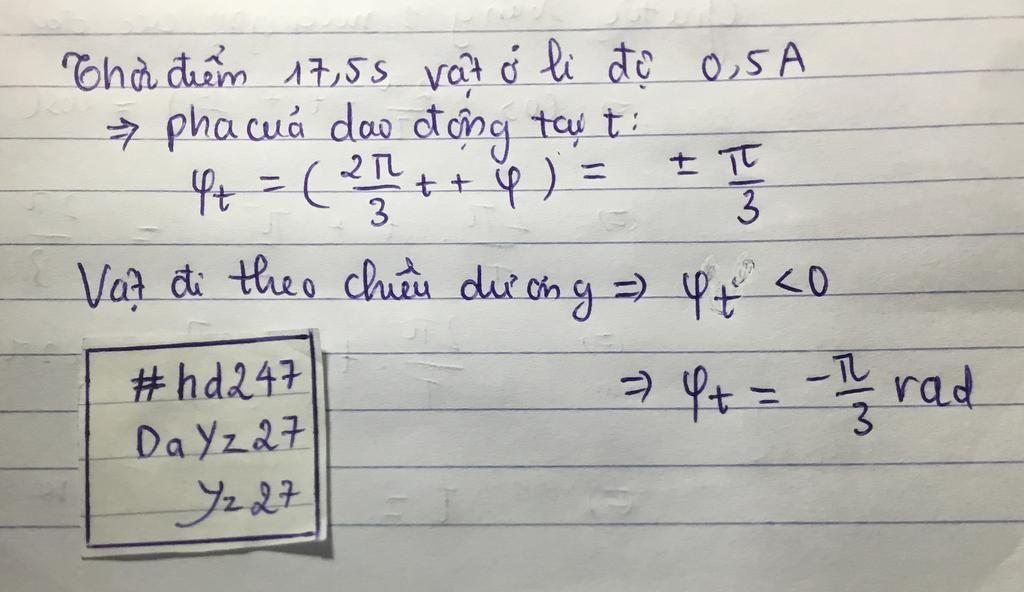 Thời điểm 17,5s vật ở li độ 0,5A
⇒ pha của dao động tại t:
φt = (2π/3 t + φ) = ± π/3
Vật đi theo chiều dương ⇒ φt < 0
⇒ φt = -π/3 rad
#hd247
DaYz27
Yz27